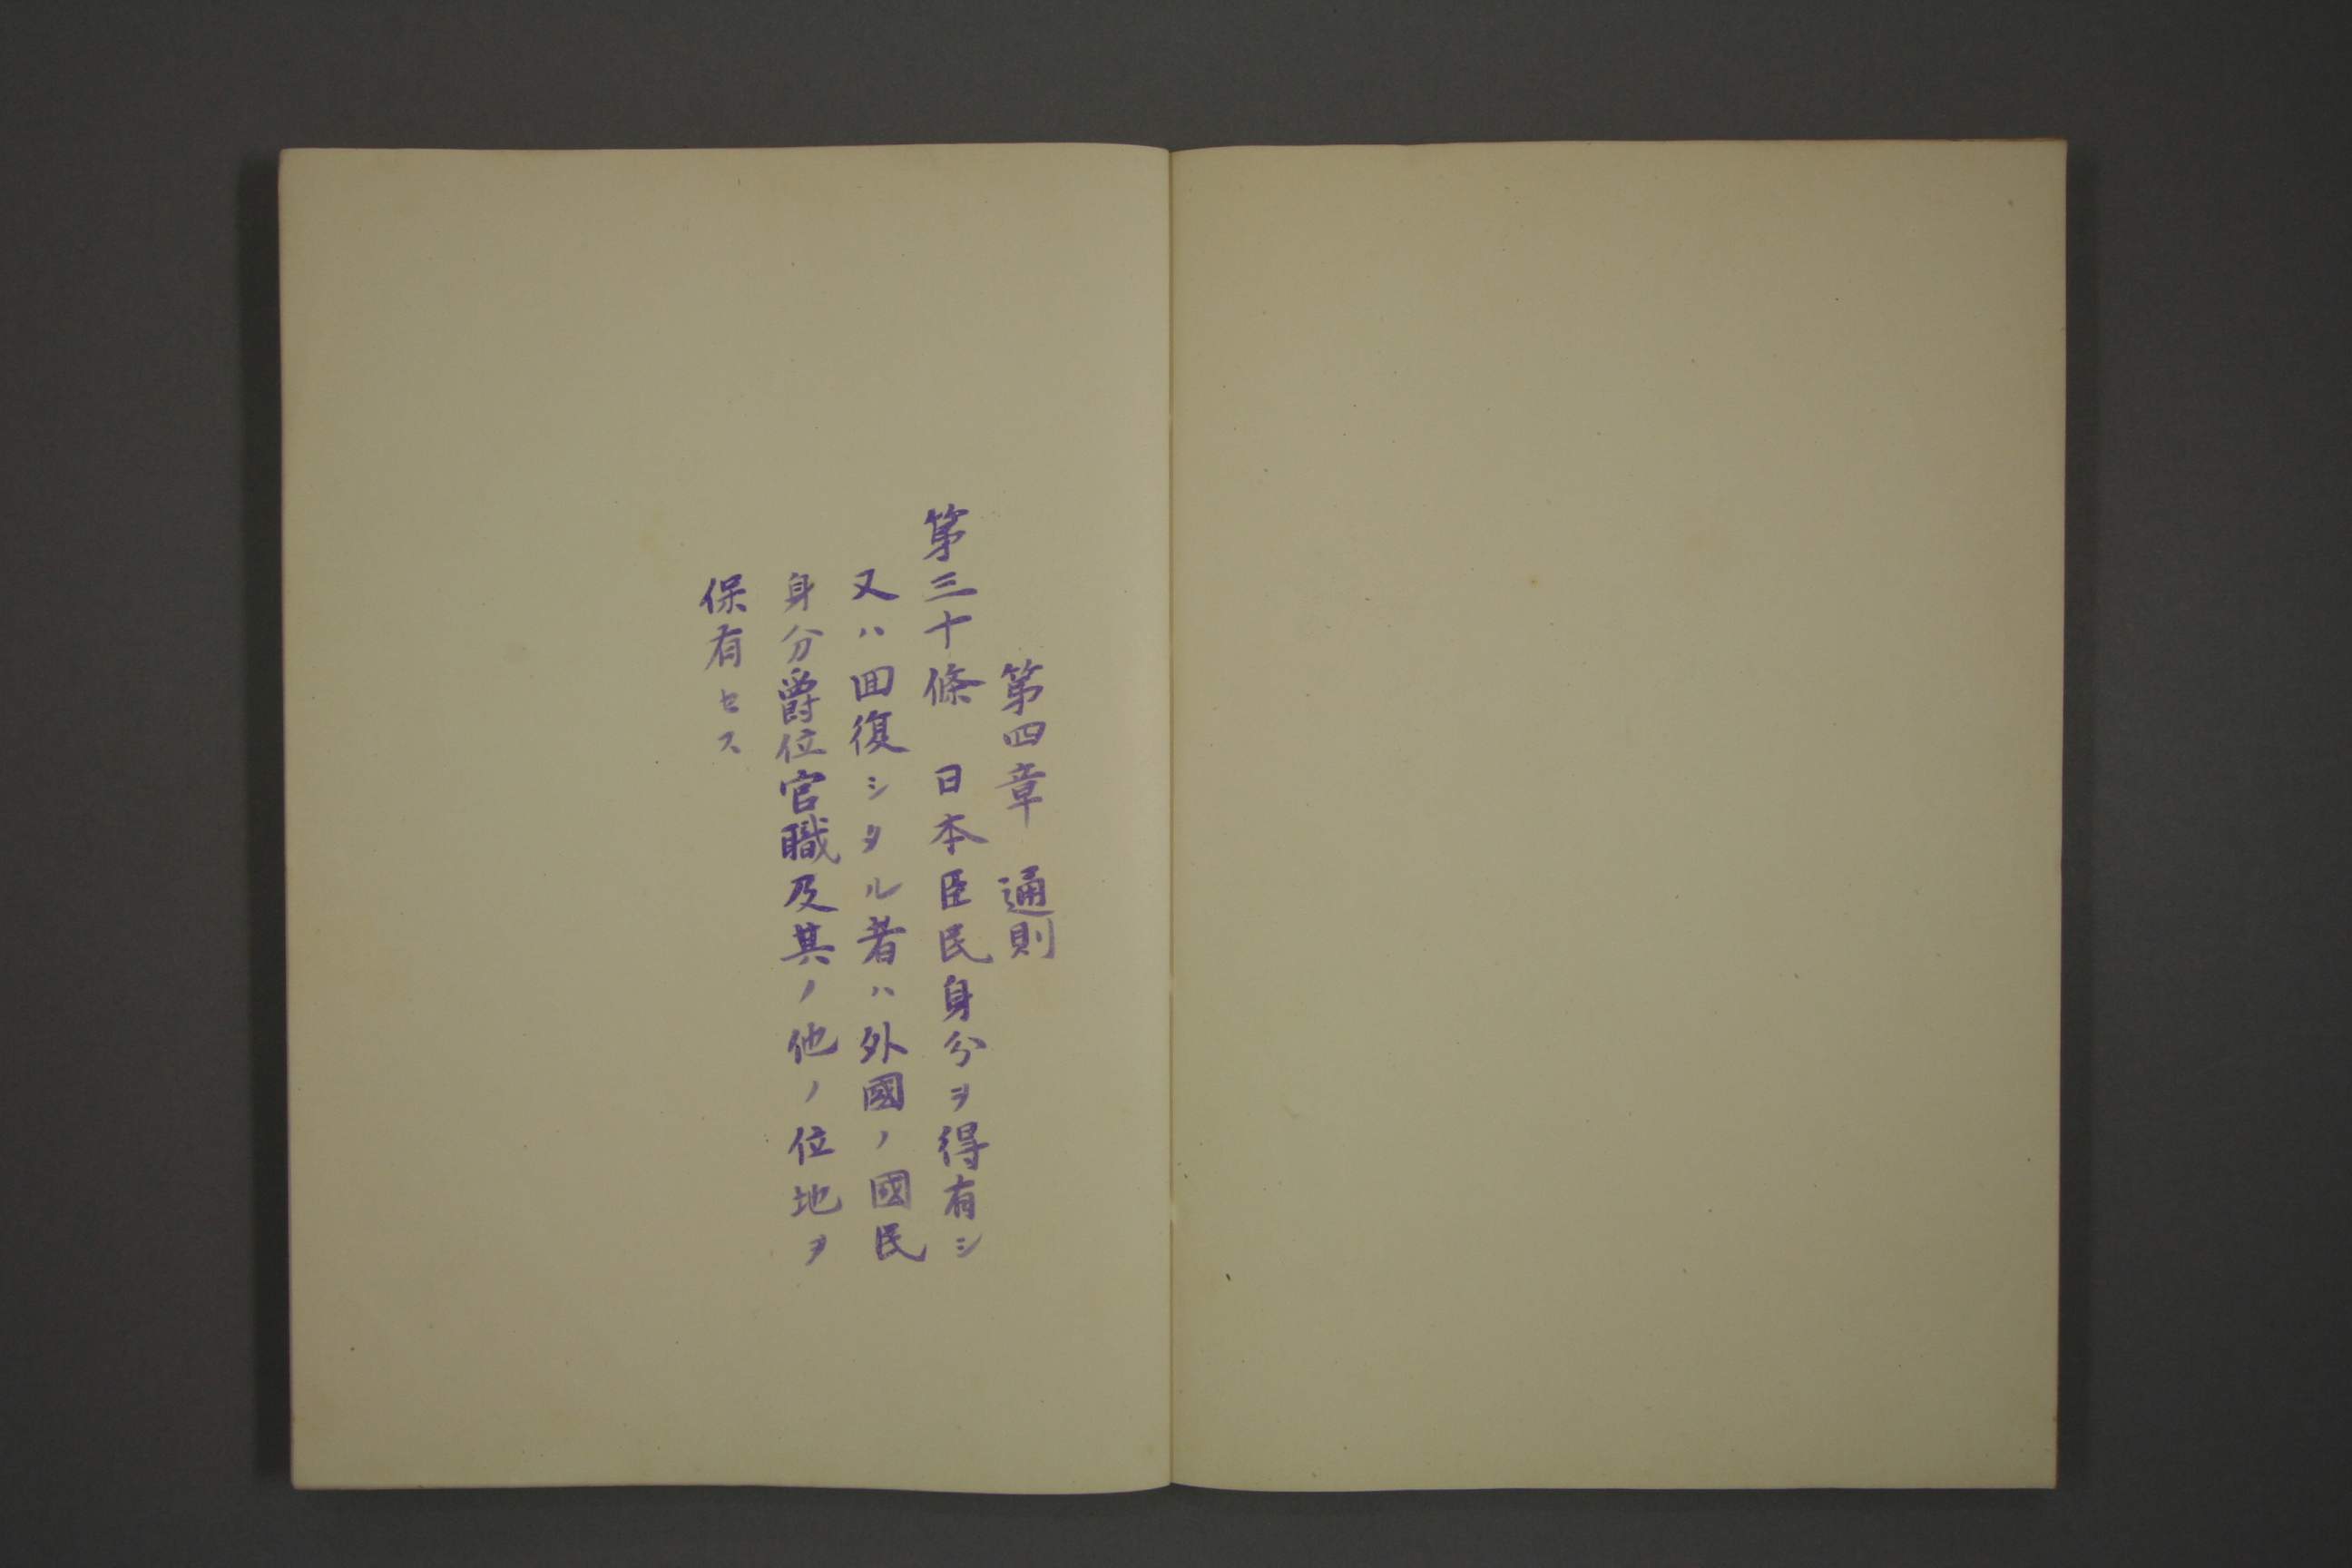 第四章　通則
第三十條　日本臣民身分ヲ得有シ
又ハ囬復シタル者ハ外國ノ國民
身分爵位官職及其ノ他ノ位地ヲ
保有セス